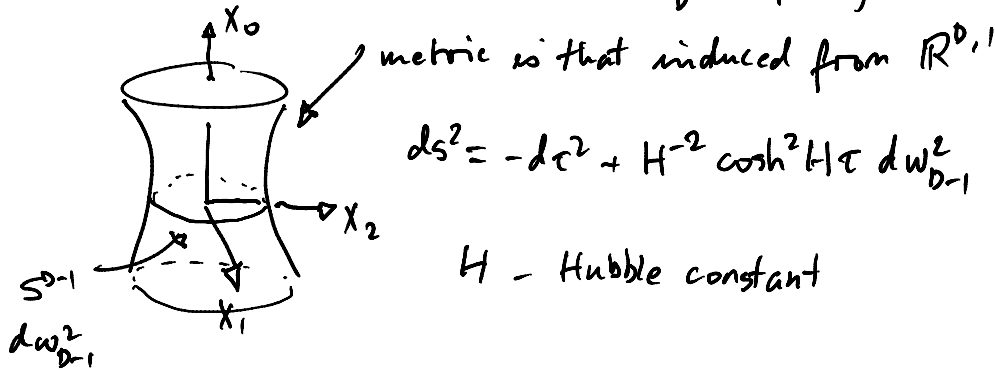 X₀
metric is that induced from ℝᴰ,¹
ds² = -dτ² + H⁻² cosh² Hτ dω²_D-1
X₂
H - Hubble constant
Sᴰ⁻¹
X₁
dω²_D-1